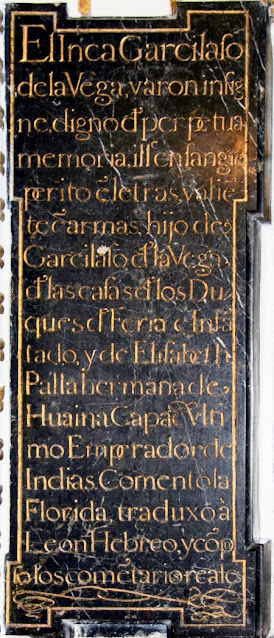 El Inca Garcilaso
de la Vega, varon insig
ne, digno đ perpetua
memoria, ill̃. en sangre
perito ẽ letras, valiẽ
te ẽ armas, hijo de
Garcilaso đ la Vega,
đ las casas đ los Du
ques đ Feria e Infã
tado, y de Elisabeth
Palla hermana de
Huaina Capac Vlti
mo Emperador de
Indias. Comento la
Florida, traduxo à
Leon Hebreo, y cõp
uso los comẽtarios reales